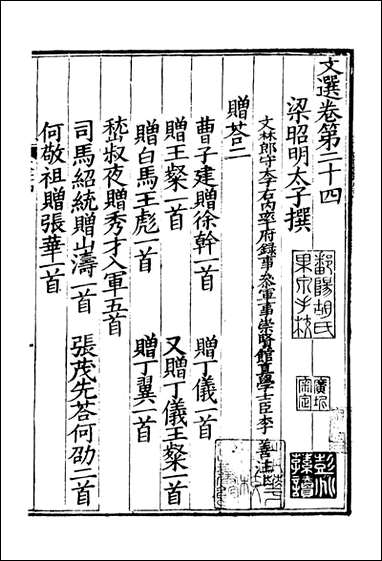 文選卷第二十四
梁昭明太子撰
文林郎守太子右内率府録事參軍事崇賢館直學士臣李善注
鄱陽胡氏
果泉手校
贈荅二
曹子建贈徐幹一首
贈丁儀一首
贈王粲一首
又贈丁儀王粲一首
贈白馬王彪一首
贈丁翼一首
嵇叔夜贈秀才入軍五首
司馬紹統贈山濤一首
張茂先荅何劭二首
何敬祖贈張華一首